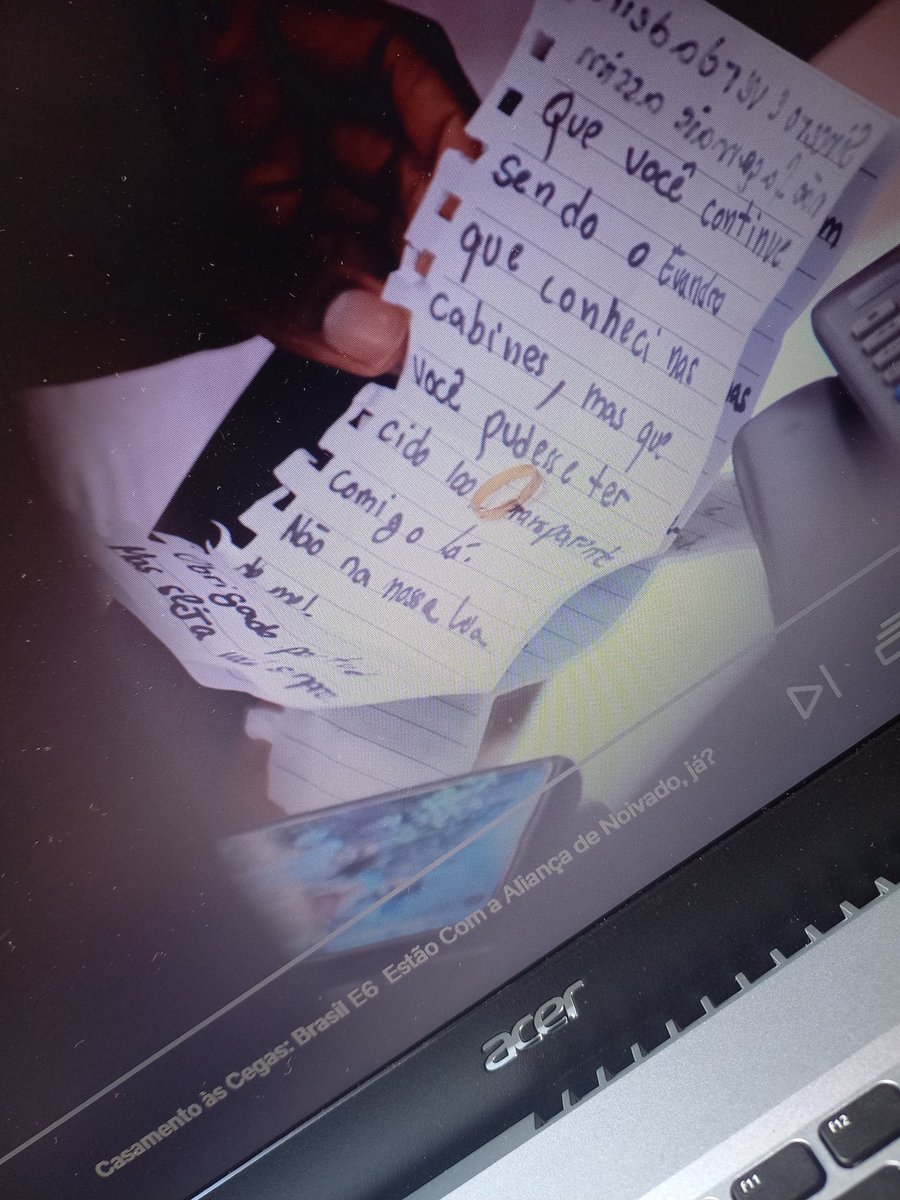 Que você continue
sendo o Evandro
que conheci nas
cabines, mas que
você pudesse ter
cido 100 transparente
comigo lá.
Não na nossa lua
de mel.
Obrigado por
Mas seja
Casamento às Cegas: Brasil E6 Estão Com a Aliança de Noivado, já?
acer
F11
F12